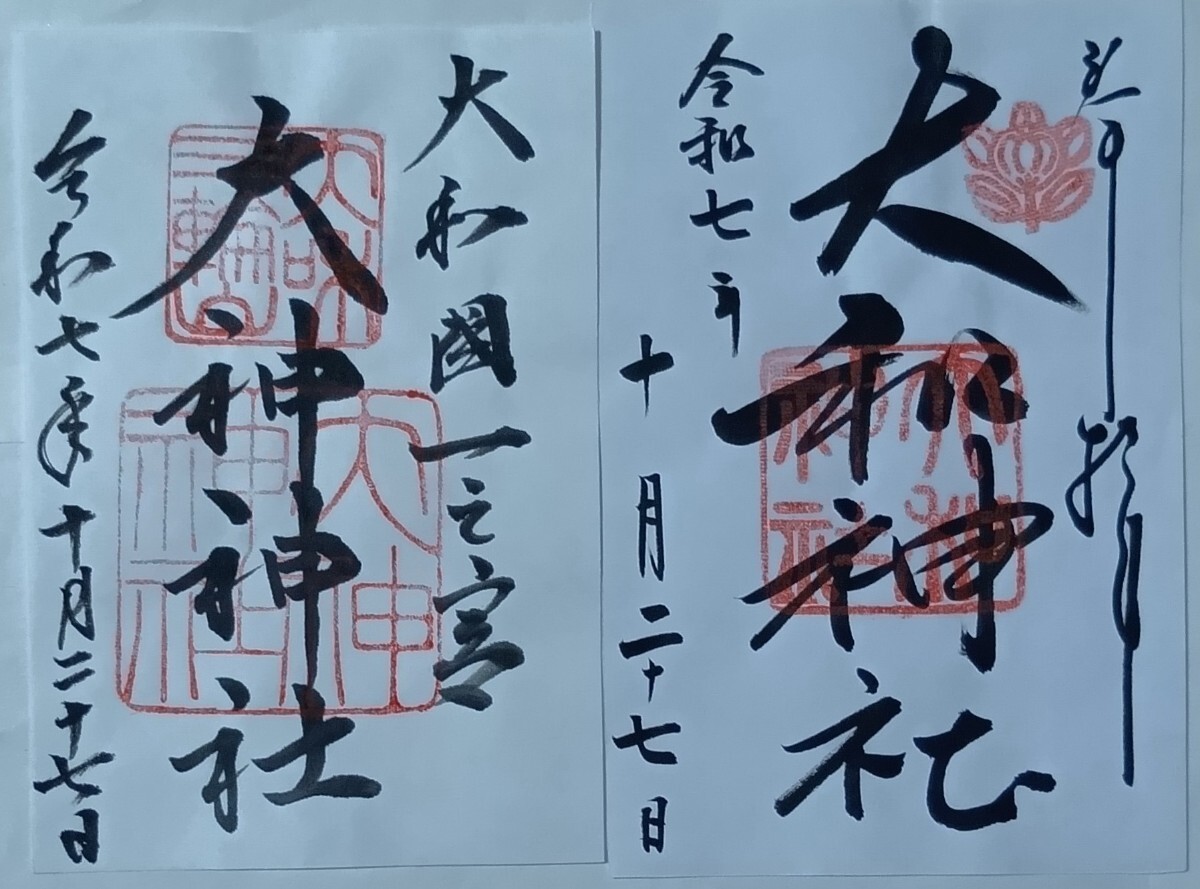 奉拝
大和神社
令和七年
十月二十七日
大和神社
大和國一之宮
大神神社
令和七年十月二十七日
大和
三輪山
大神
神社